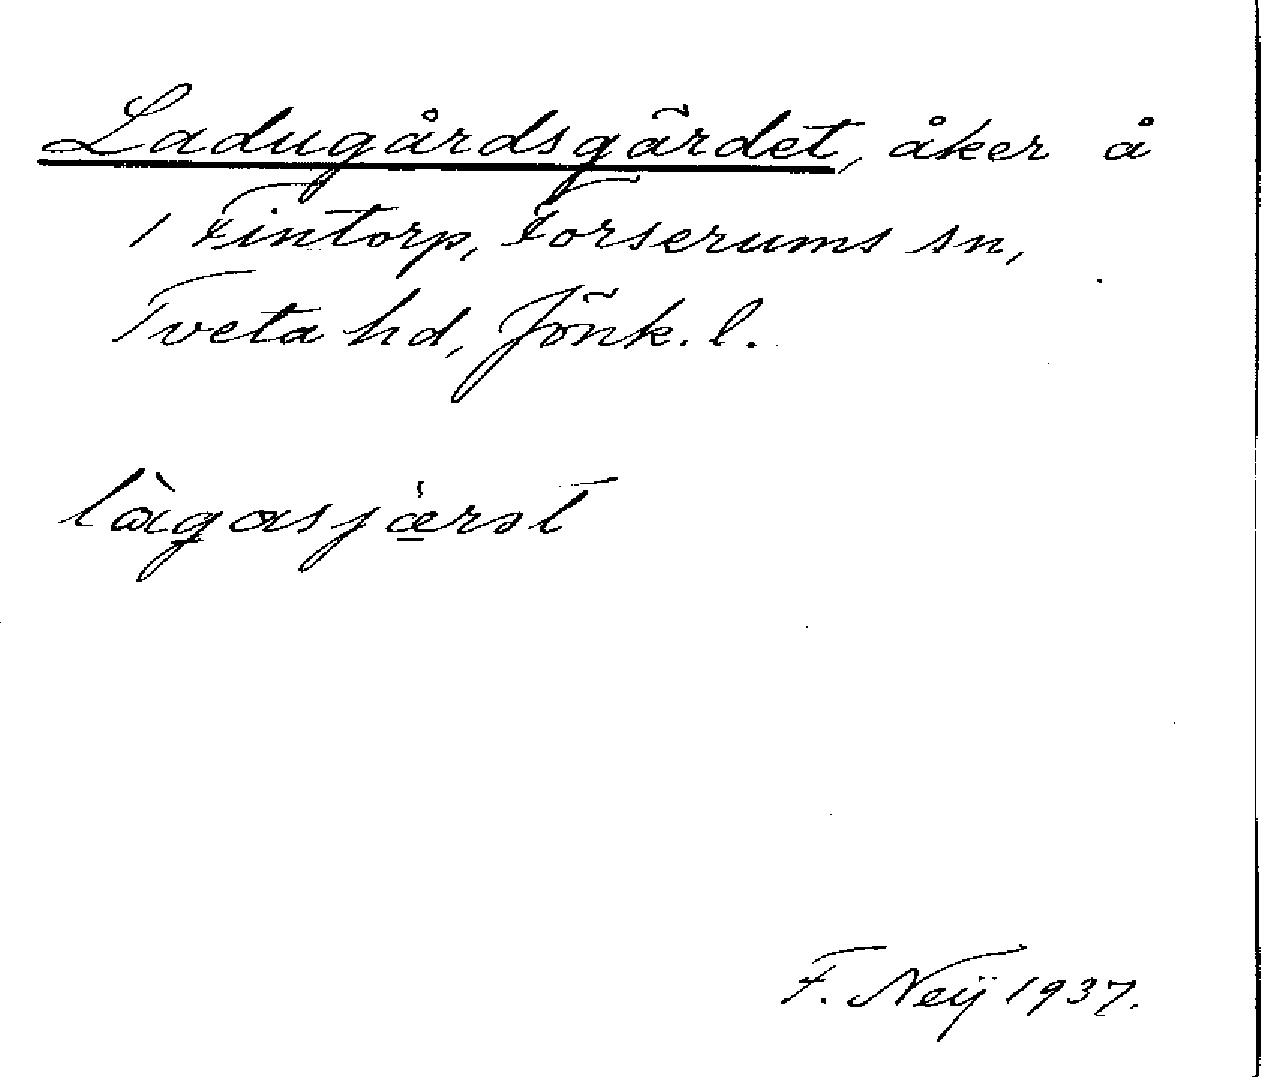 Ladugårdsgärdet, åker å
1 Fintorp, Forserums sn,
Tveta hd, Jönk. l.
làgasjærət
F. Neij 1937.